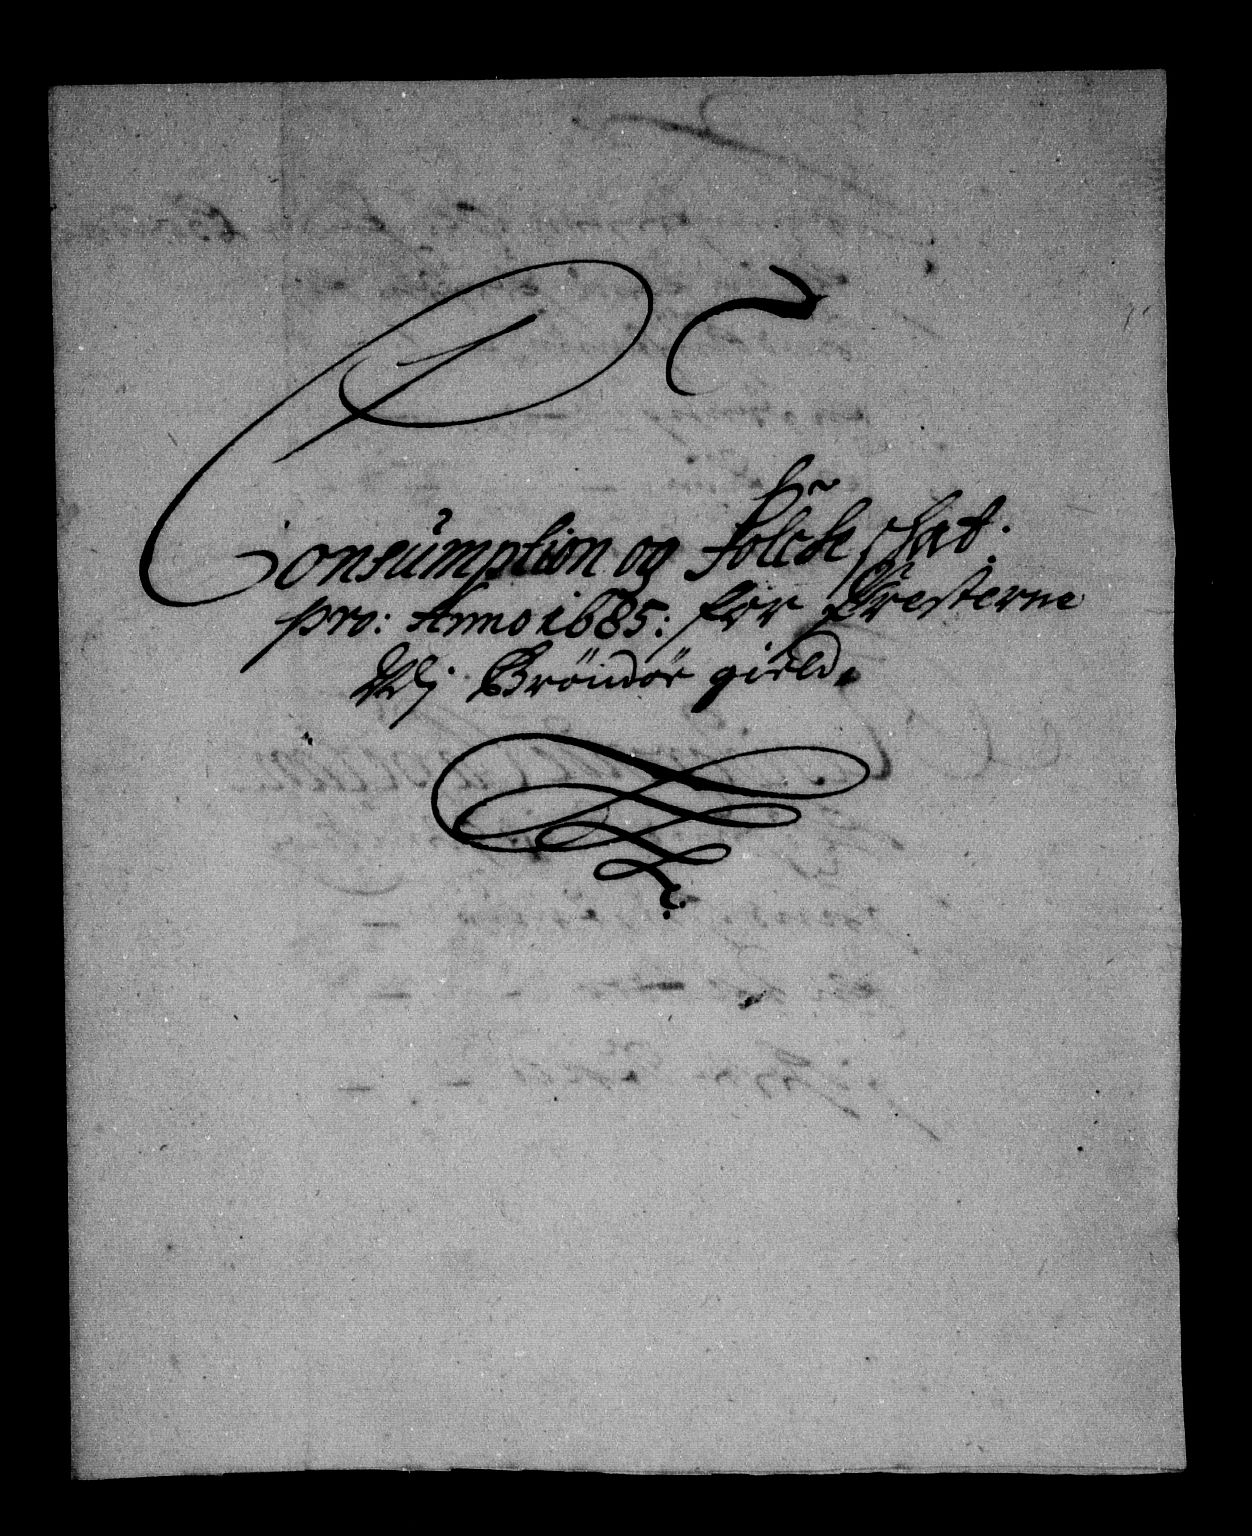 Consumption og Folcke schat.
pro: Anno 1685: for Presterne
Udj Brönöe gield.